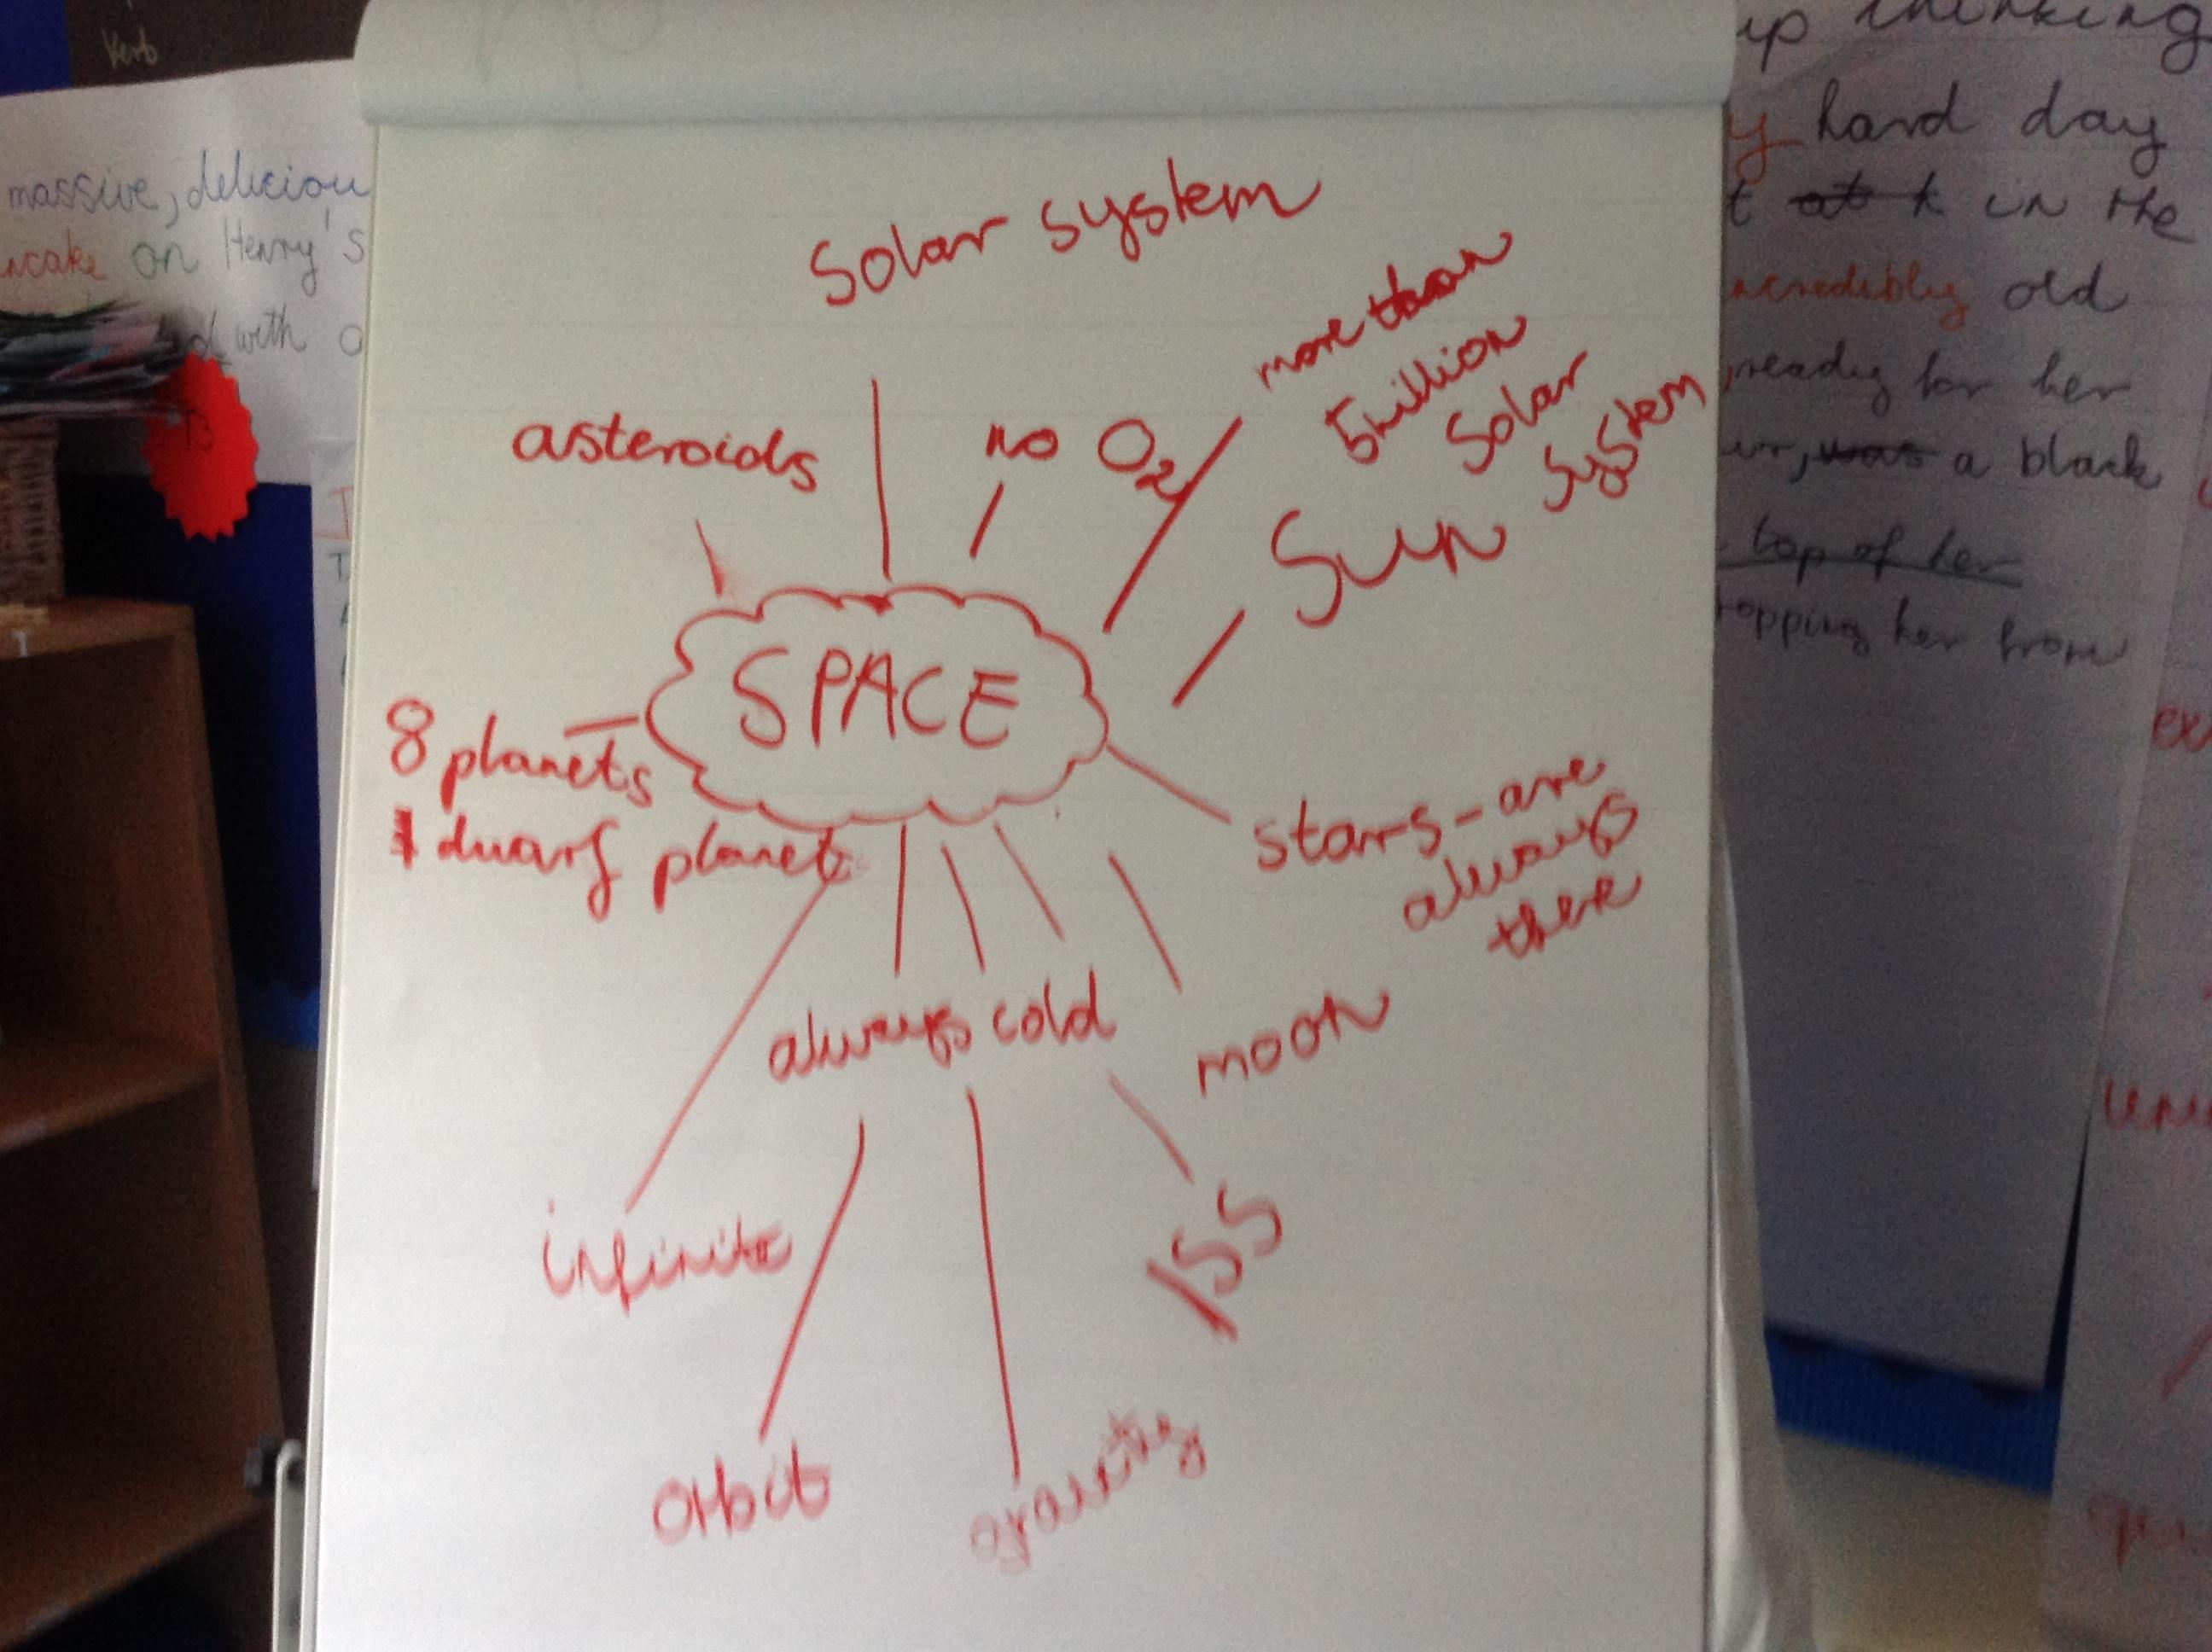 Verb
massive, deliciou
ncake on Henry's
with
Solar system
more than
5 million
Solar
System
asteroids
no O2
Sun
SPACE
8 planets
1 dwarf planet
stars - are
always
there
always cold
moon
infinite
ISS
orbit
gravity
up thinking
y hard day
t at k in the
ncredibly old
, ready for her
was a black
top of her
ropping her from